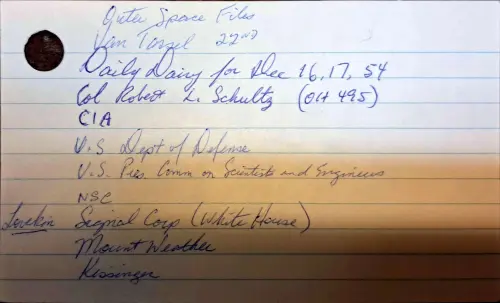 Outer Space Files
Van Tassel 22nd
Daily Dairy for Dec 16, 17, 54
Col Robert L. Schultz (OH 495)
CIA
U.S Dept of Defense
U.S. Pres. Comm on Scientists and Engineers
NSC
Lovekin Signal Corp (White House)
Mount Weather
Kissinger